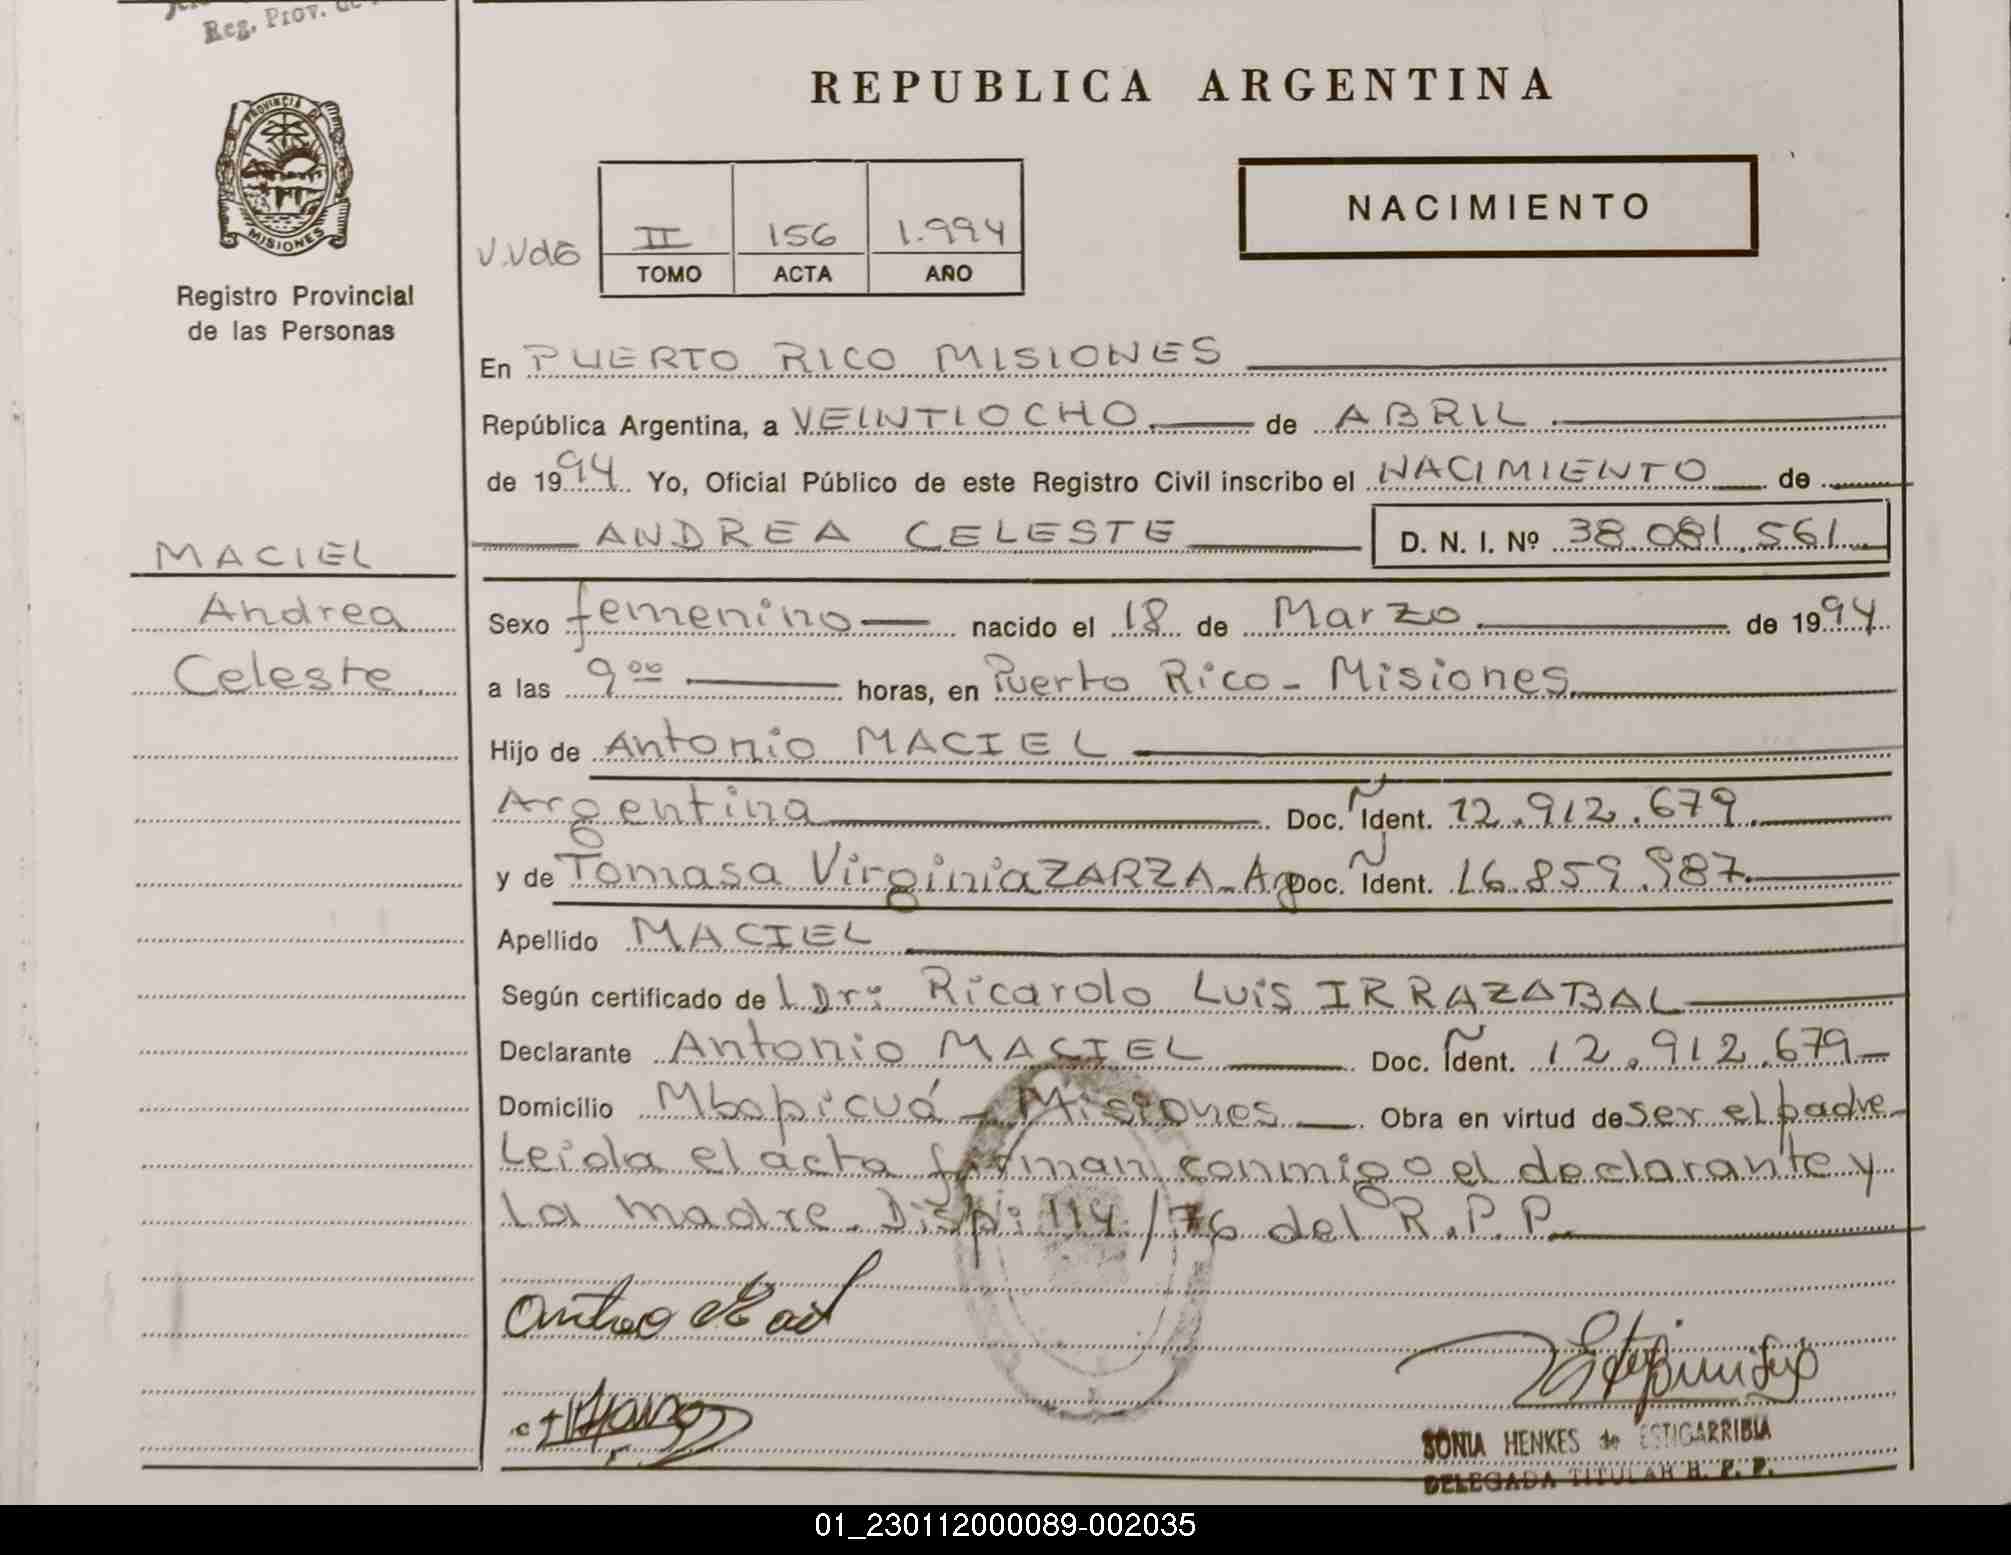 Reg. Prov. de
PROVINCIA DE
MISIONES
Registro Provincial
de las Personas
MACIEL
Andrea
Celeste
REPUBLICA ARGENTINA
NACIMIENTO
II 156 1.994
TOMO ACTA AÑO
En PUERTO RICO MISIONES
República Argentina, a VEINTIOCHO de ABRIL
de 1994 Yo, Oficial Público de este Registro Civil inscribo el NACIMIENTO de
ANDREA CELESTE D. N. I. Nº 38.081.561
Sexo femenino nacido el 18 de Marzo de 1994
a las 9 00 horas, en Puerto Rico - Misiones
Hijo de Antonio MACIEL
Argentina Doc. Ident. 12.912.679
y de Tomasa Virginia ZARZA - Arg Doc. Ident. 16.859.987
Apellido MACIEL
Según certificado de l Dr: Ricardo Luis IRRAZABAL
Declarante Antonio MACIEL Doc. Ident. 12.912.679
Domicilio Mbopicuá - Misiones Obra en virtud de ser el padre
Leida el acta firman conmigo el declarante y
La madre. Disp: 114/76 del R.P.P.
SONIA HENKES de ESTIGARRIBIA
DELEGADA TITULAR R. P. P.
01_230112000089-002035